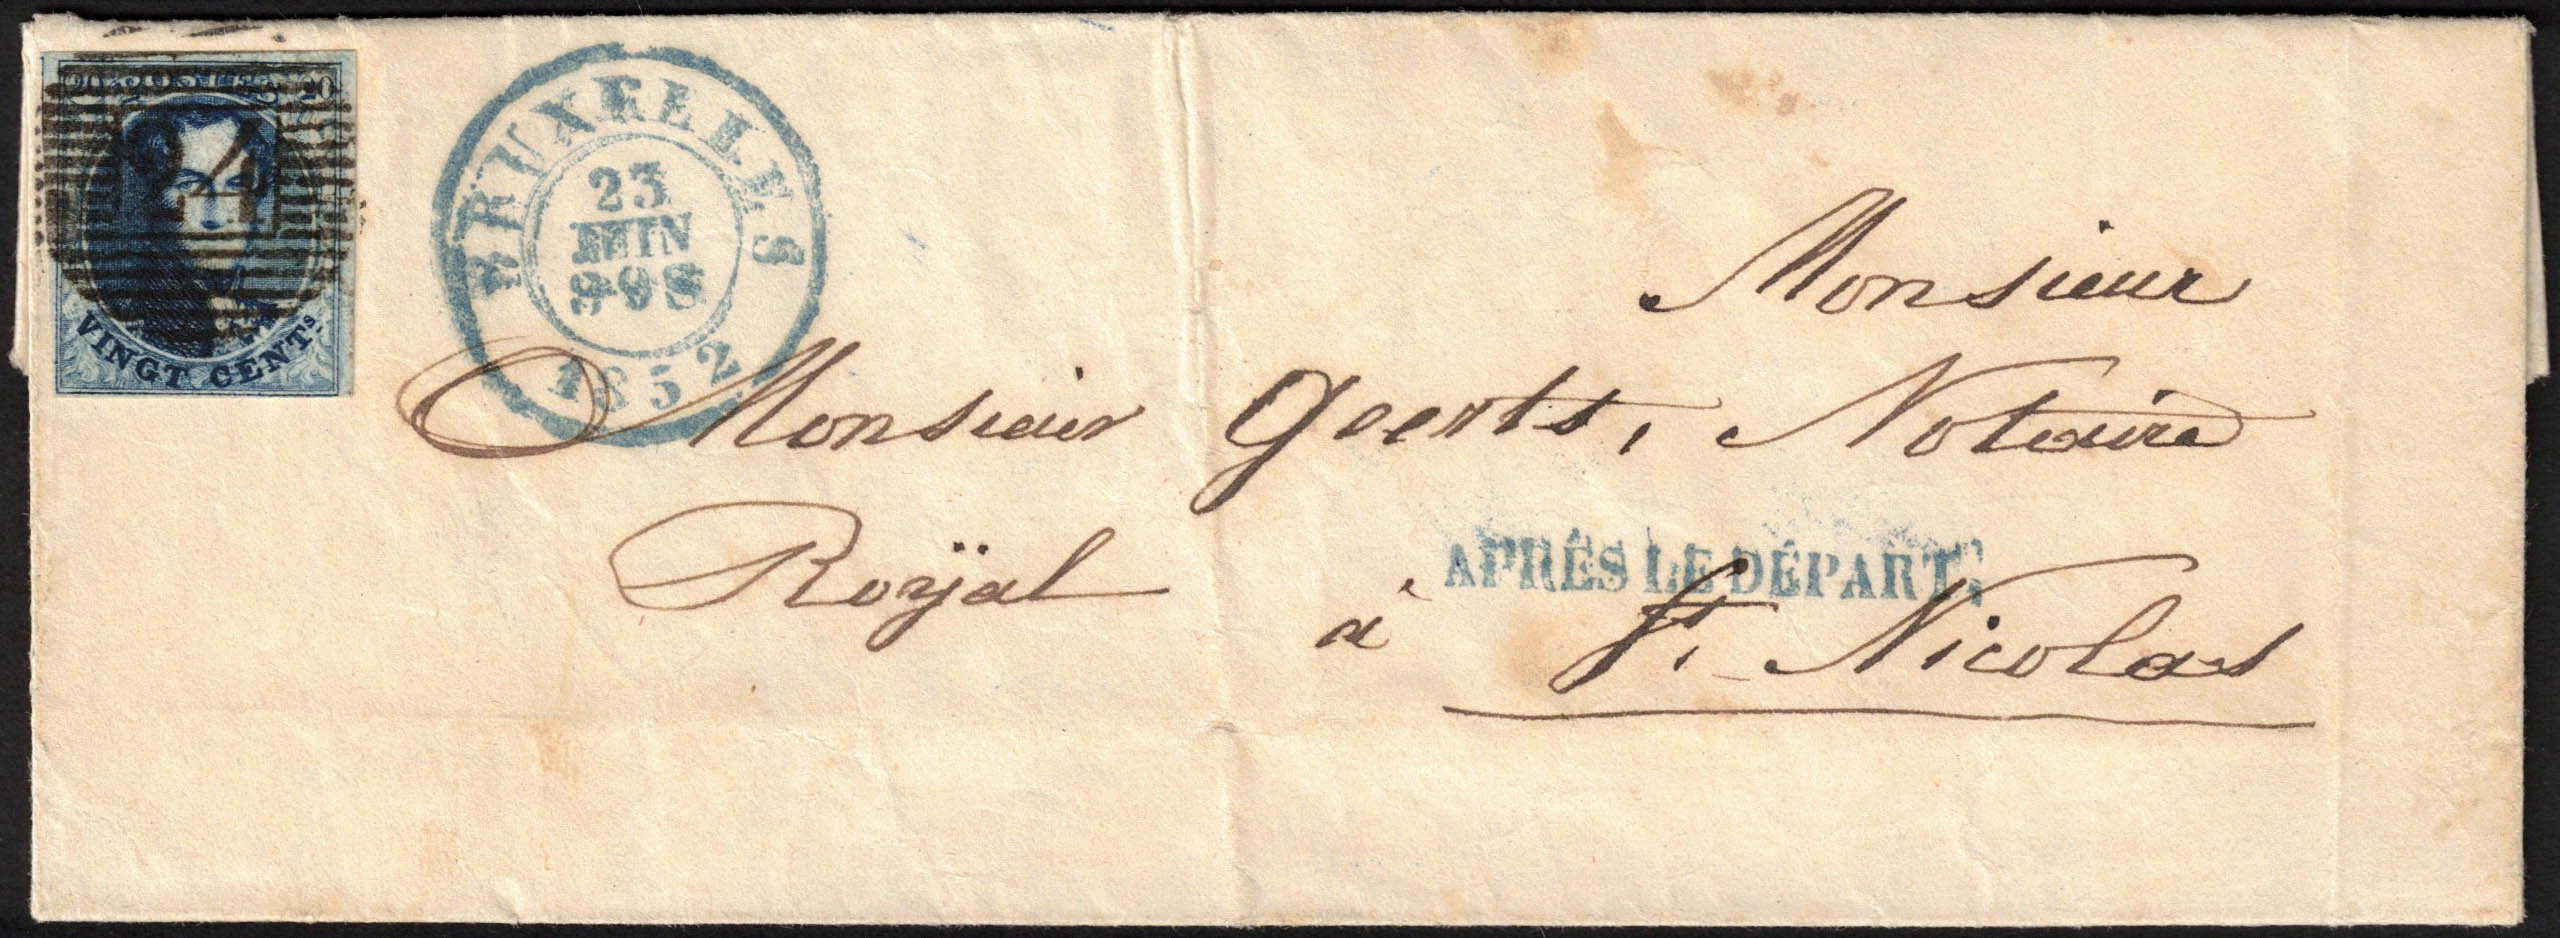 20 POSTES 20
24
VINGT CENTS.
BRUXELLES
23
JUIN
9-9S
1852
Monsieur
Monsieur Geerts, Notaire
Royäl
APRÈS LE DÉPART.
à St. Nicolas